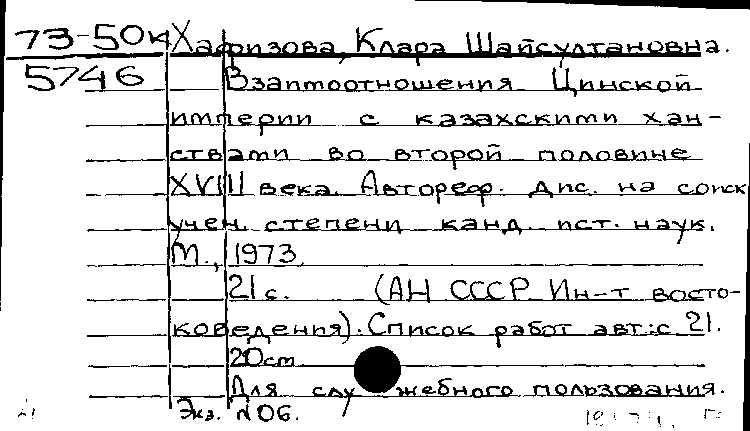 73-50к Хафизова, Клара Шайсултановна.
5746 Взаимоотношения Цинской
империи с казахскими хан-
ствами во второй половине
XVIII века. Автореф. дис. на соиск
учен. степени канд. ист. наук.
М., 1973.
21 с. (АН СССР Ин-т восто-
коведения). Список работ авт.: с 21.
20 см
Для служебного пользования.
Экз. № 06.